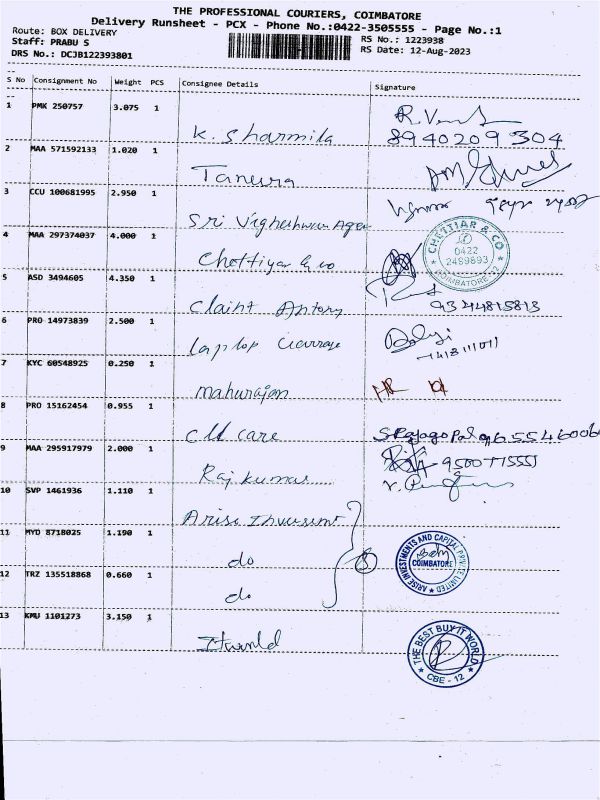 THE PROFESSIONAL COURIERS, COIMBATORE
Delivery Runsheet - PCX - Phone No.:0422-3505555 - Page No.:1
Route: BOX DELIVERY
Staff: PRABU S
DRS No.: DCJB122393801
RS No.: 1223938
RS Date: 12-Aug-2023
S No Consignment No Weight PCS Consignee Details Signature
1 PMK 250757 3.075 1
K. Sharmila 8940209304
2 MAA 571592133 1.020 1
Taneira
3 CCU 100681995 2.950 1
Sri
4 MAA 297374037 4.000 1
Chettiyar & co
CHETTIAR & CO
0422
2489893
COIMBATORE-12
5 ASD 3494605 4.350 1
Claint Antony 9344815813
6 PRO 14973839 2.500 1
laptop
7 KYC 60548925 0.250 1
maharajan
8 PRO 15162454 0.955 1
care S Rajagopal
9 MAA 295917979 2.000 1
Raj kumar
10 SVP 1461936 1.110 1
Arise
11 MYD 8718025 1.190 1
do
ARISE INVESTMENTS AND CAPITAL PRIVATE LIMITED
COIMBATORE
12 TRZ 135518868 0.660 1
do
13 KMU 1101273 3.150 1
Itworld
THE BEST BUY IT WORLD
CBE - 12